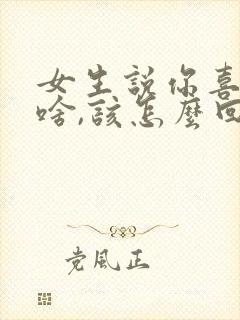 女生説你喜
啥,該怎麼回
党風正